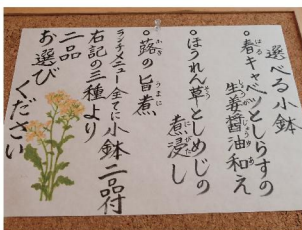 選べる小鉢
○春キャベツとしらすの
生姜醤油和え
○ほうれん草としめじの
煮浸し
○蕗の旨煮
ランチメニュー全てに小鉢二品付
右記の三種より
二品
お選びください